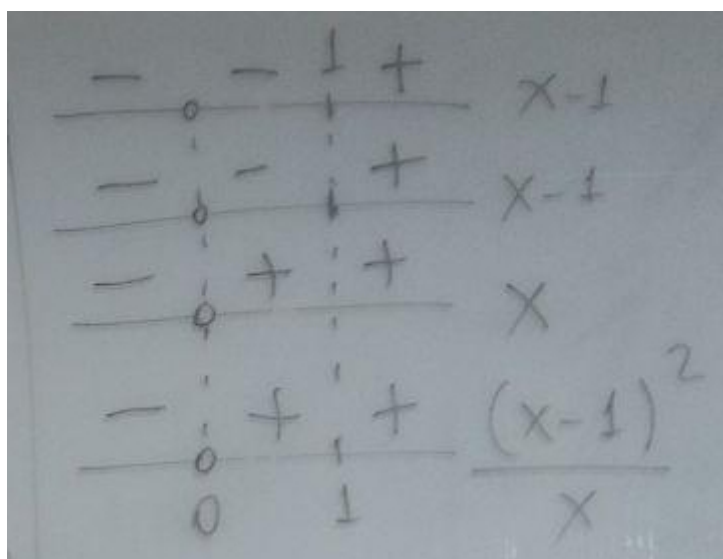 − − 1 + x-1
− - + x-1
− + + x
− + + (x-1)²
x
0 1